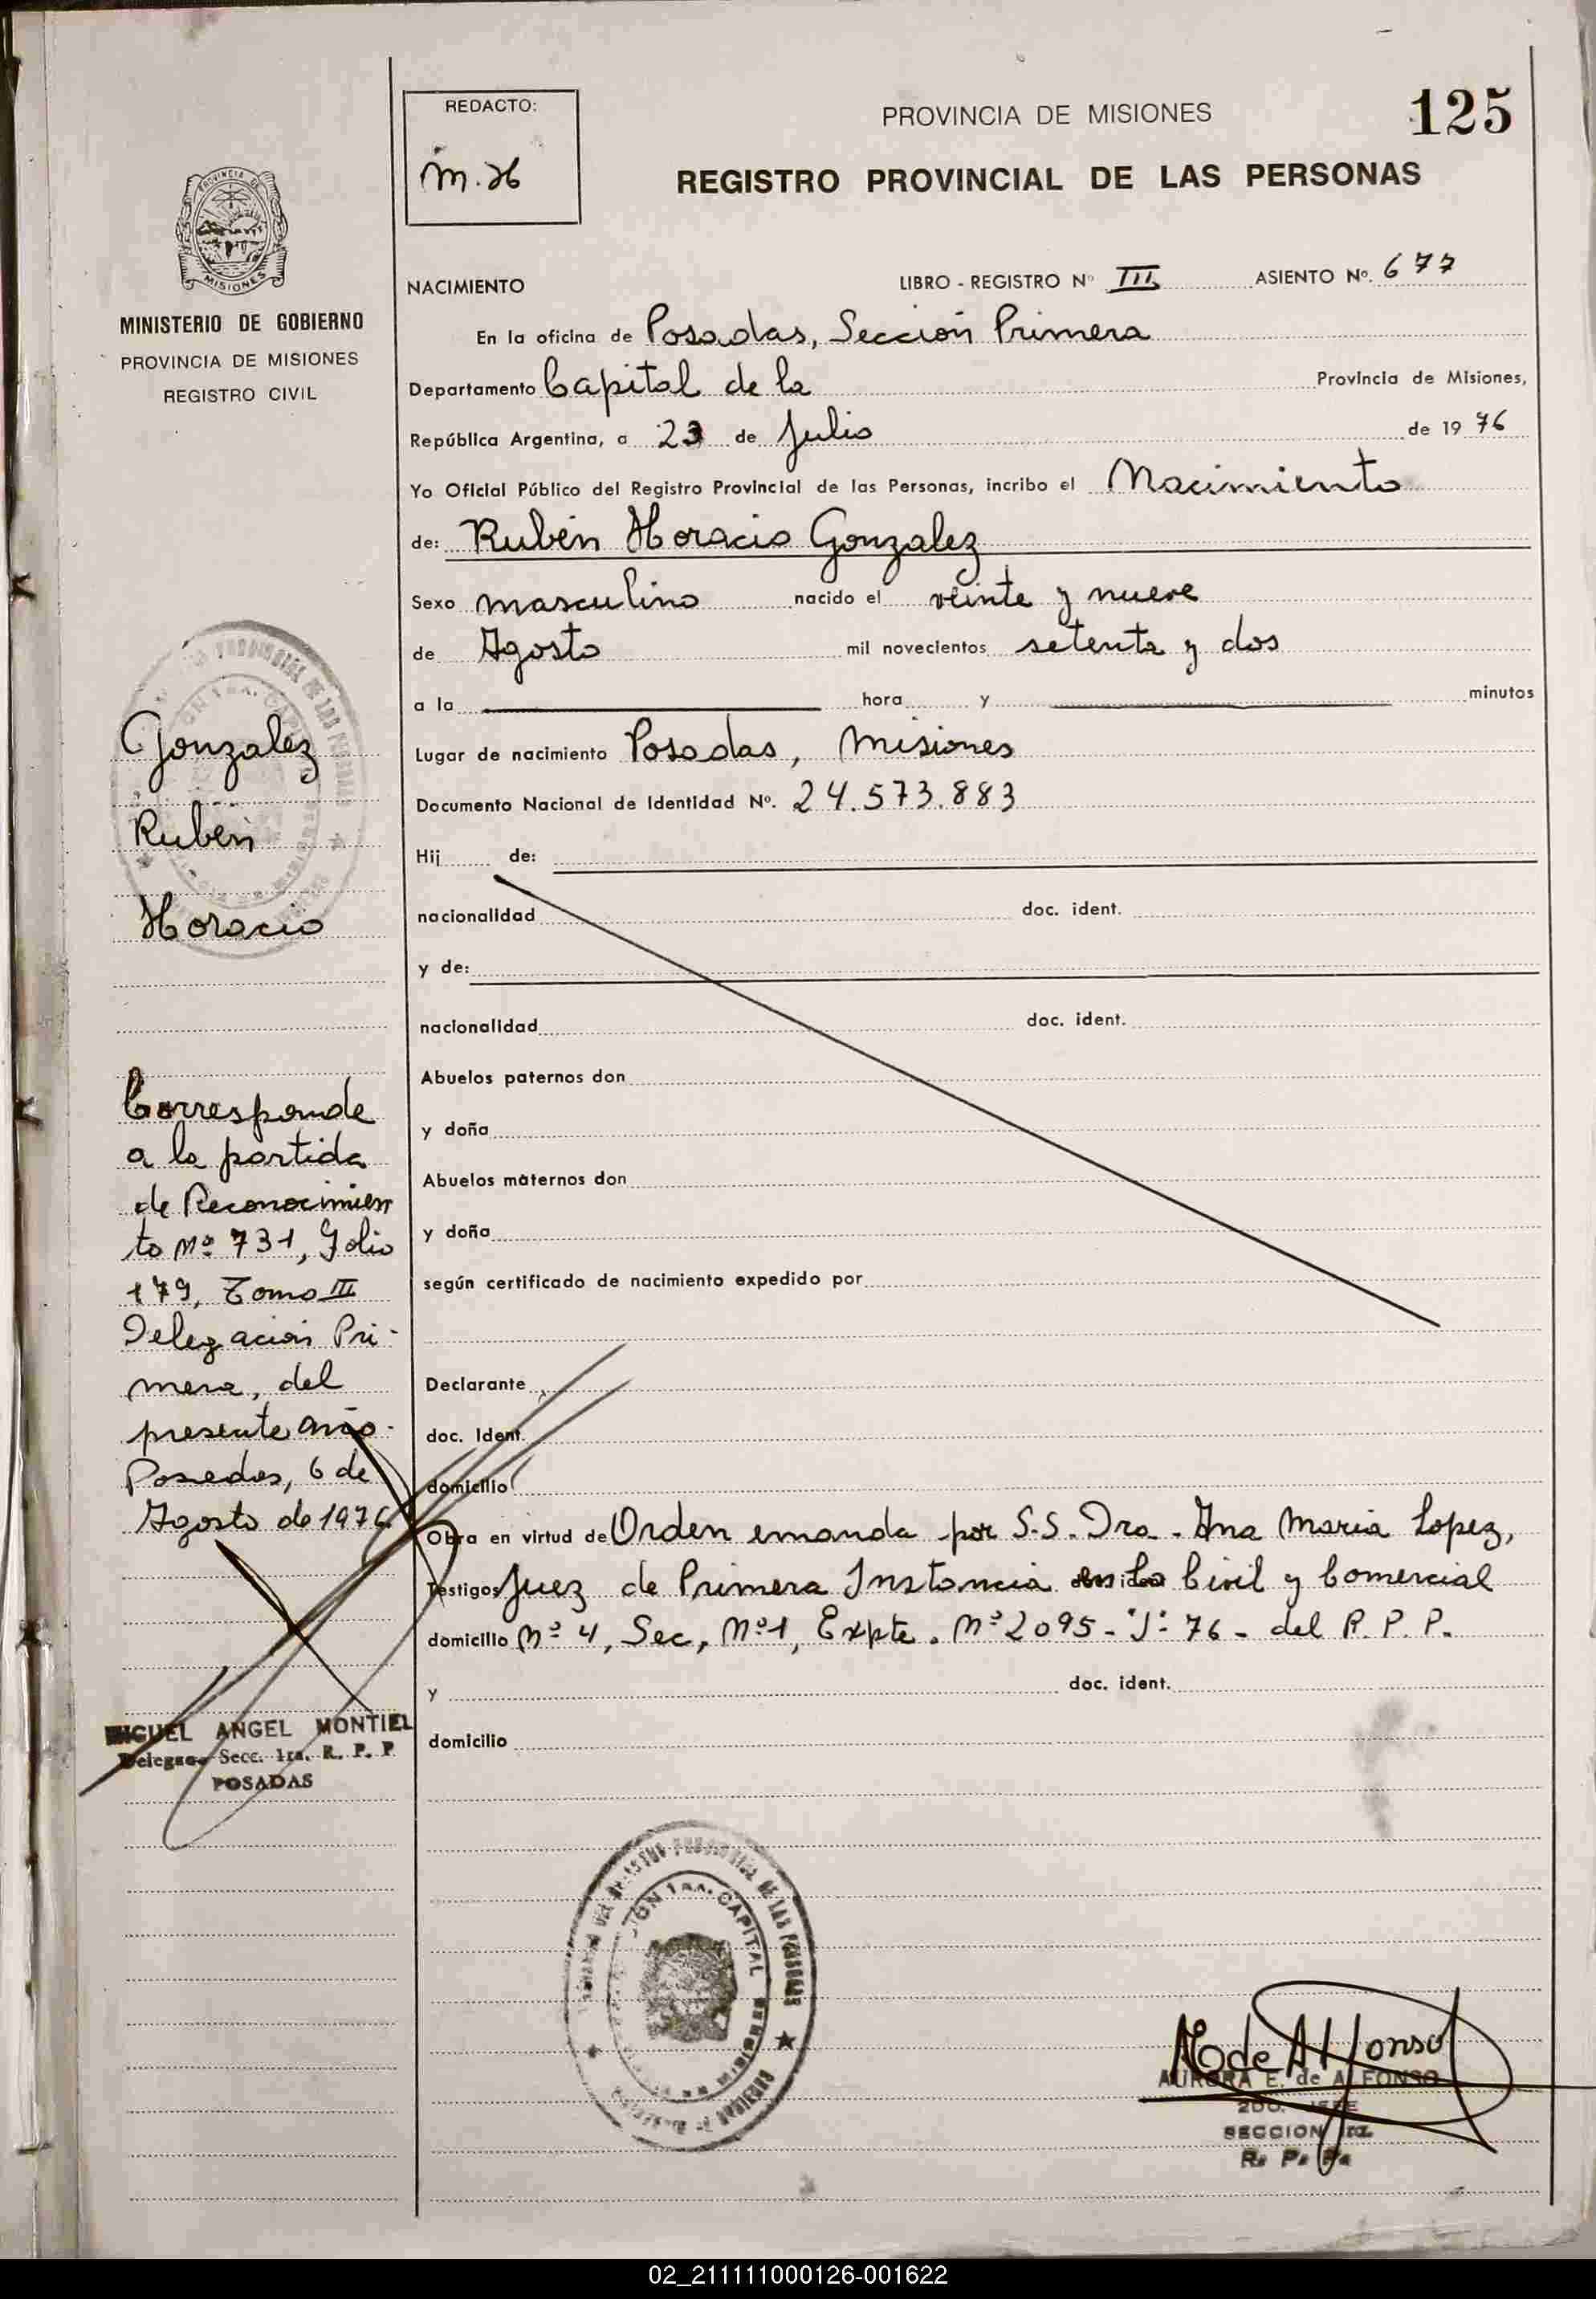 REDACTO:
M.H
PROVINCIA DE MISIONES
125
REGISTRO PROVINCIAL DE LAS PERSONAS
MISIONES
MINISTERIO DE GOBIERNO
PROVINCIA DE MISIONES
REGISTRO CIVIL
NACIMIENTO
LIBRO - REGISTRO Nº III ASIENTO Nº. 677
En la oficina de Posadas, Sección Primera
Departamento Capital de la Provincia de Misiones,
República Argentina, a 23 de Julio de 1976
Yo Oficial Público del Registro Provincial de las Personas, incribo el Nacimiento
de: Rubén Horacio Gonzalez
Sexo masculino nacido el veinte y nueve
de Agosto mil novecientos setenta y dos
a la hora y minutos
Lugar de nacimiento Posadas, Misiones
Documento Nacional de Identidad Nº. 24.573.883
Hij de:
nacionalidad doc. ident.
y de:
nacionalidad doc. ident.
Abuelos paternos don
y doña
Abuelos maternos don
y doña
según certificado de nacimiento expedido por
Declarante
doc. Ident.
domicilio
Obra en virtud de Orden emanda por S.S. Dra. Ana Maria Lopez,
Testigos Juez de Primera Instancia en lo Civil y Comercial
domicilio Nº 4, Sec, Nº1, Expte. Nº 2095-"J"-76- del R.P.P.
y doc. ident.
domicilio
Gonzalez
Rubén
Horacio
Corresponde
a la partida
de Reconocimien
to Nº 731, Folio
179, Tomo III
Delegación Pri-
mera, del
presente año.
Posadas, 6 de
Agosto de 1976
MIGUEL ANGEL MONTIEL
Delegado Secc. 1ra. R. P. P
POSADAS
CAPITAL
A E de Alfonso
AURORA E. de ALFONSO
2DO. JEFE
SECCION 1ra.
R. P. P.
02_211111000126-001622